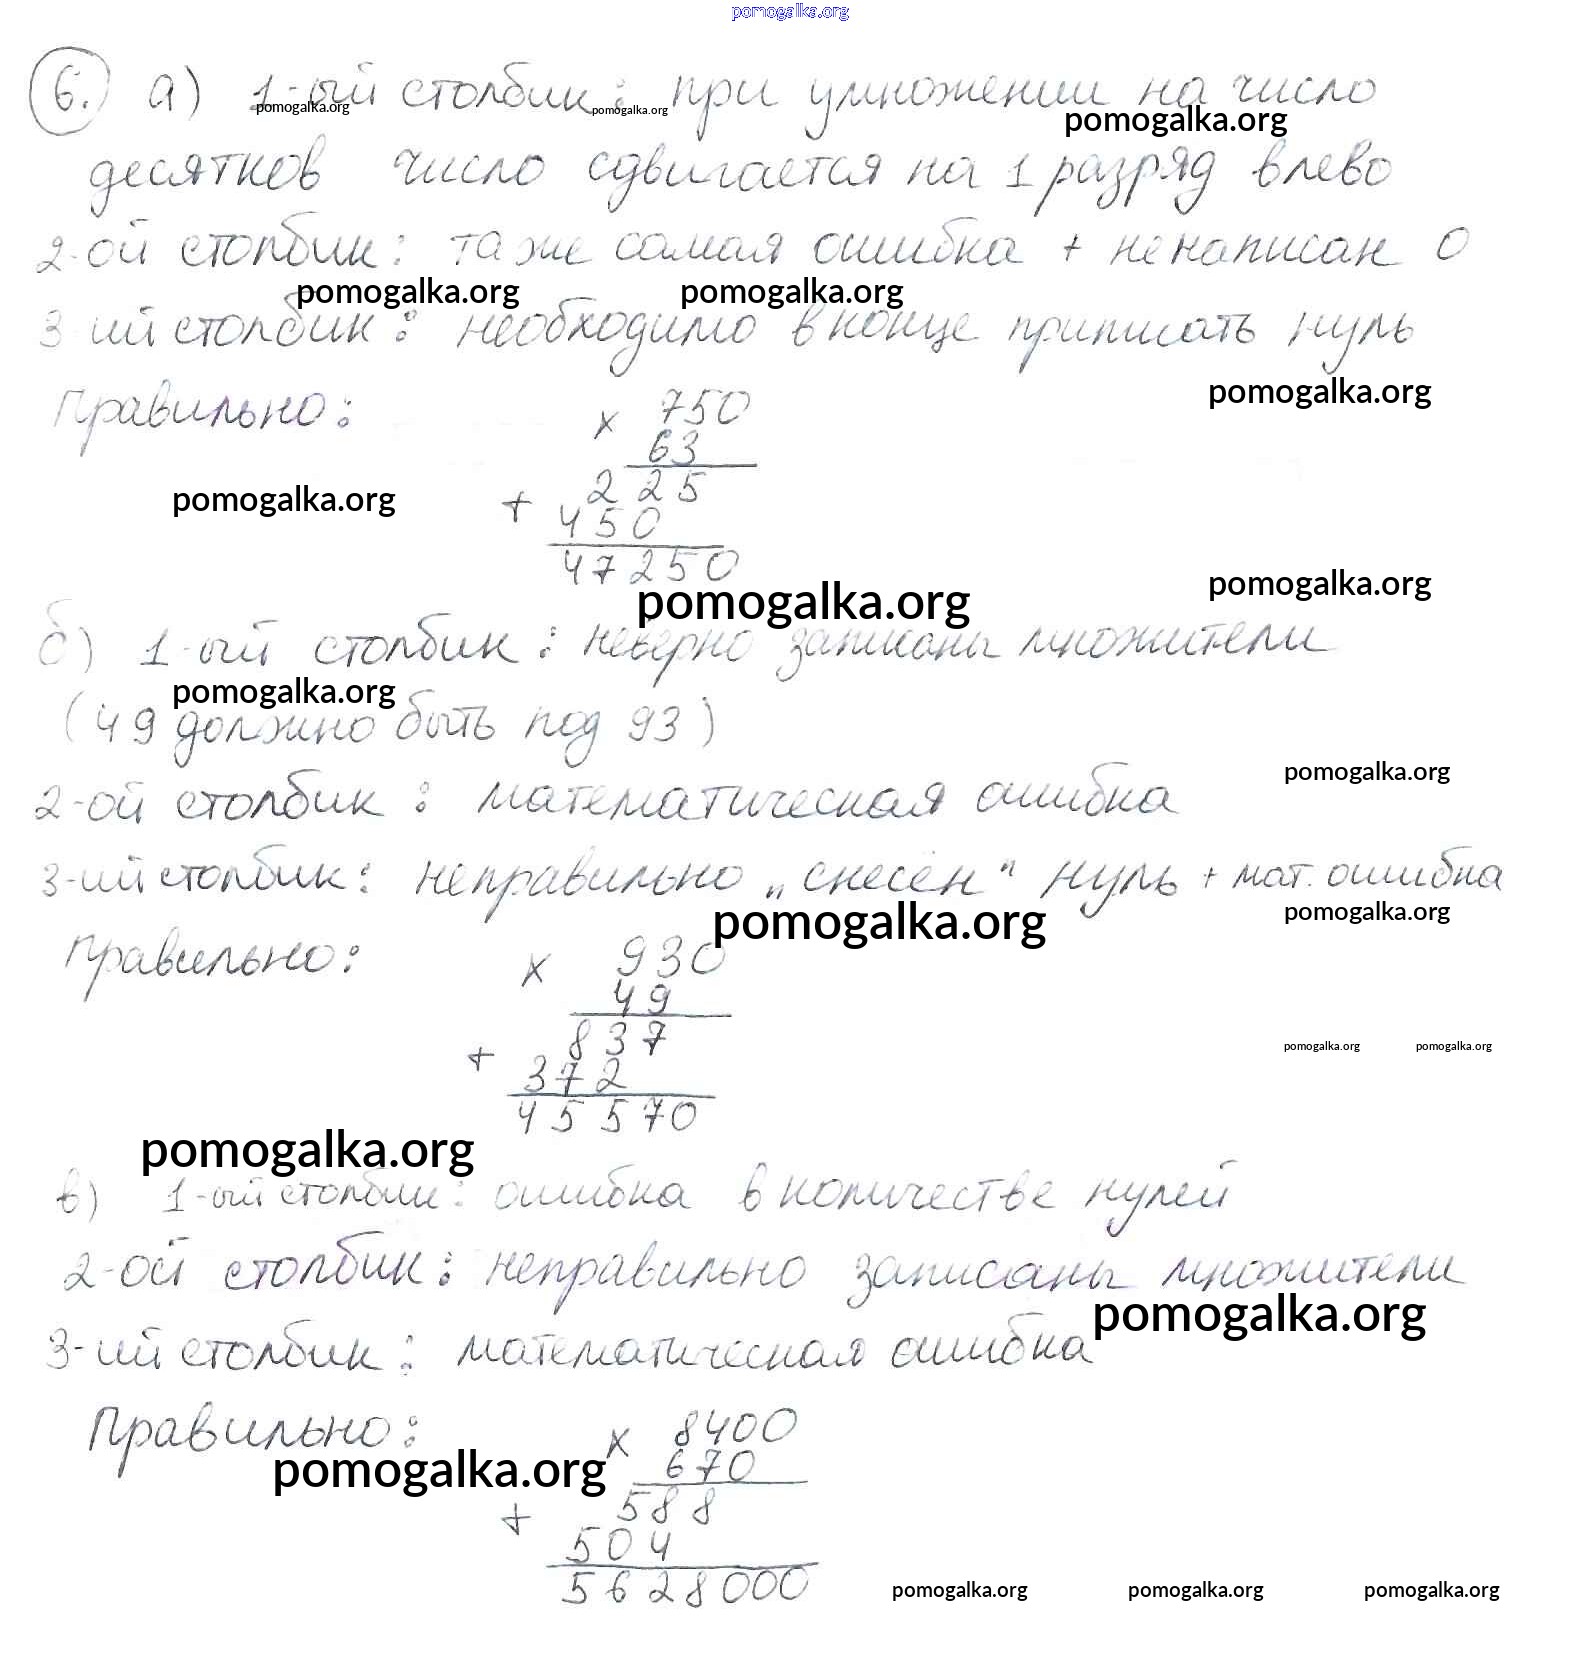 pomogalka.org
6. а) 1-ый столбик: при умножении на число
pomogalka.org pomogalka.org pomogalka.org
десятков число сдвигается на 1 разряд влево
2-ой столбик: та же самая ошибка + не написан 0
pomogalka.org pomogalka.org
3-ий столбик: необходимо в конце приписать нуль
pomogalka.org
Правильно: × 750
63
pomogalka.org 2 2 5
+ 4 5 0
4 7 2 5 0
pomogalka.org pomogalka.org
б) 1-ый столбик: неверно записаны множители
pomogalka.org
(49 должно быть под 93)
pomogalka.org
2-ой столбик: математическая ошибка
3-ий столбик: неправильно „снесён" нуль + мат. ошибка
pomogalka.org pomogalka.org
Правильно: × 930
49
8 3 7
pomogalka.org pomogalka.org
+ 3 7 2
4 5 5 7 0
pomogalka.org
в) 1-ый столбик: ошибка в количестве нулей
2-ой столбик: неправильно записаны множители
pomogalka.org
3-ий столбик: математическая ошибка
Правильно: × 8400
pomogalka.org 670
5 8 8
+ 5 0 4
5 6 2 8 0 0 0
pomogalka.org pomogalka.org pomogalka.org